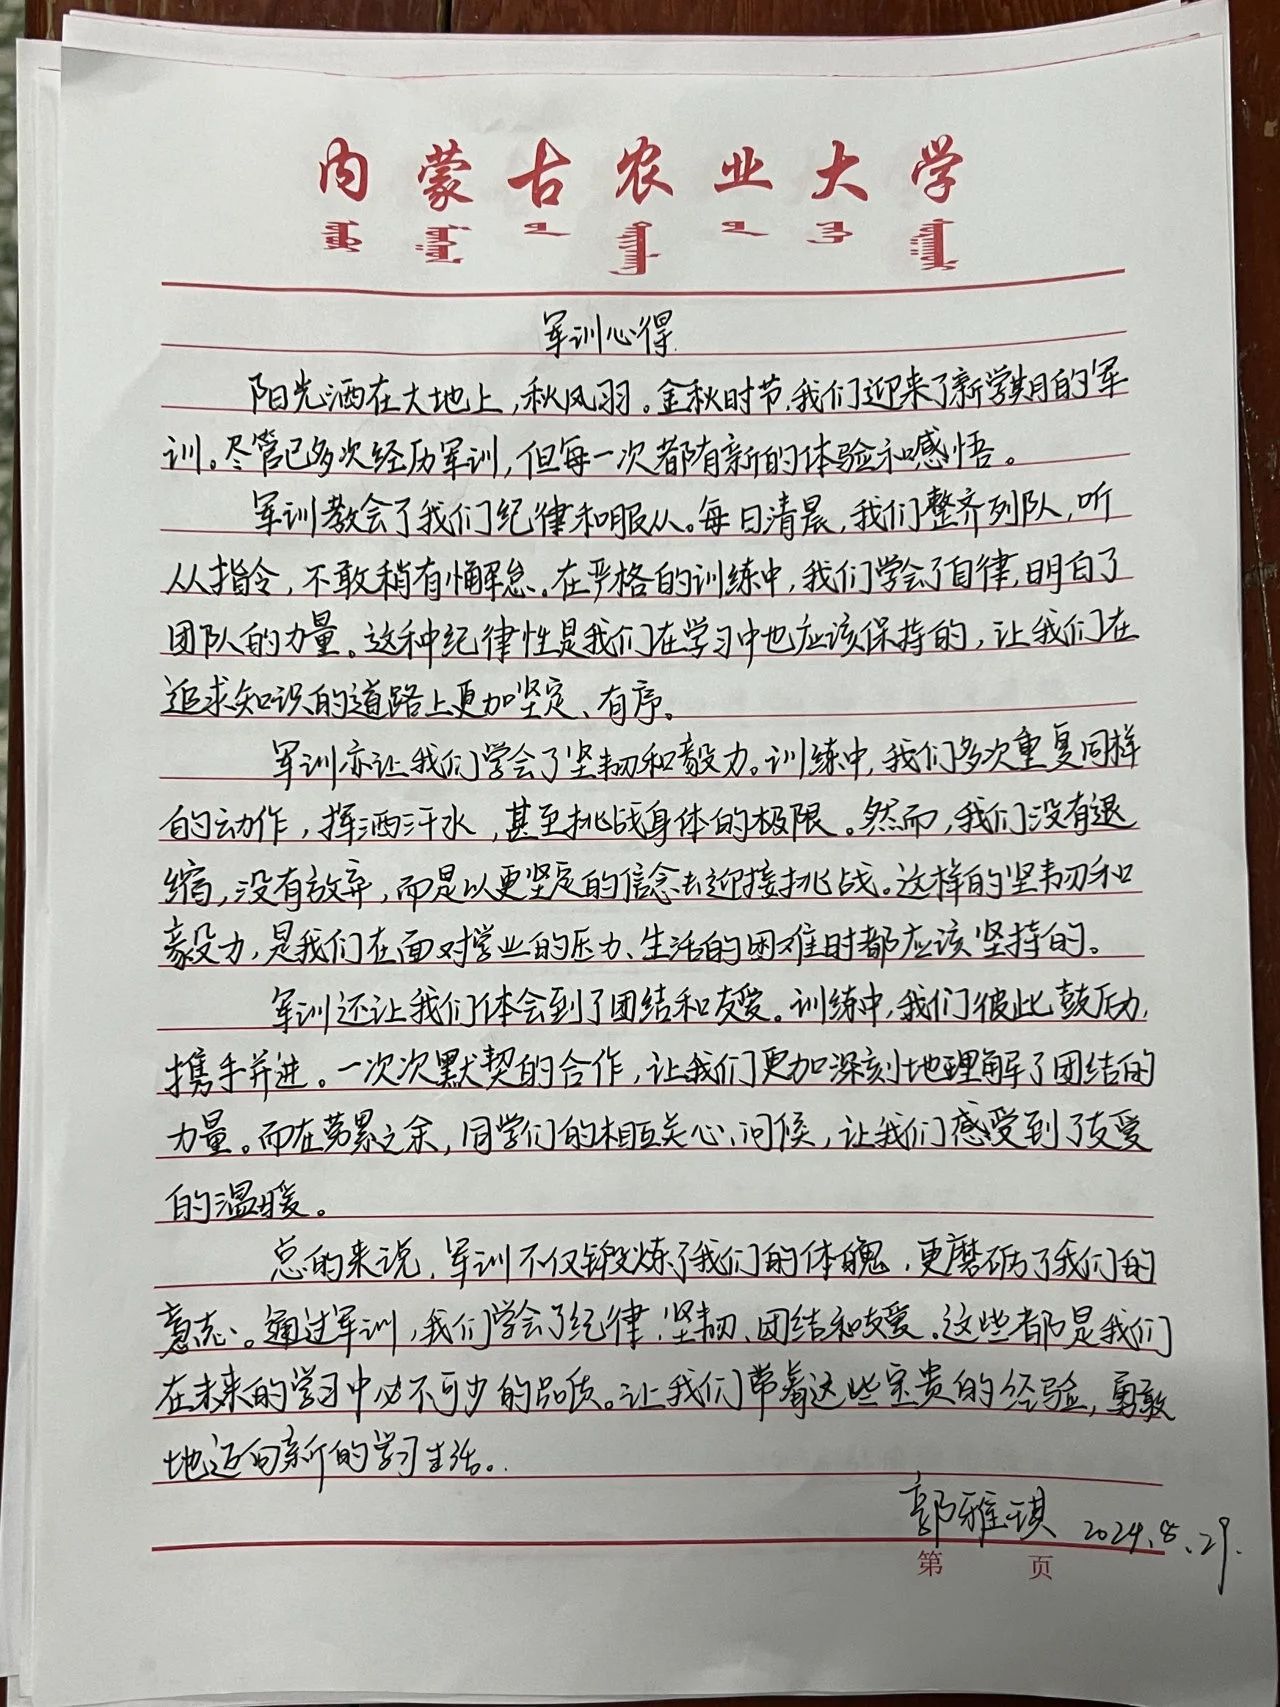 内蒙古农业大学
军训心得
阳光洒在大地上,秋风羽。金秋时节,我们迎来了新学期的军
训。尽管已多次经历军训,但每一次都有新的体验和感悟。
军训教会了我们纪律和服从。每日清晨,我们整齐列队,听
从指令,不敢稍有懈怠。在严格的训练中,我们学会了自律,明白了
团队的力量。这种纪律性是我们在学习中也应该保持的,让我们在
追求知识的道路上更加坚定、有序。
军训亦让我们学会了坚韧和毅力。训练中,我们多次重复同样
的动作,挥洒汗水,甚至挑战身体的极限。然而,我们没有退
缩,没有放弃,而是以更坚定的信念去迎接挑战。这样的坚韧和
毅力,是我们在面对学业的压力、生活的困难时都应该坚持的。
军训还让我们体会到了团结和友爱。训练中,我们彼此鼓励,
携手并进。一次次默契的合作,让我们更加深刻地理解了团结的
力量。而在劳累之余,同学们的相互关心、问候,让我们感受到了友爱
的温暖。
总的来说,军训不仅锻炼了我们的体魄,更磨砺了我们的
意志。通过军训,我们学会了纪律、坚韧、团结和友爱。这些都是我们
在未来的学习中必不可少的品质。让我们带着这些宝贵的经验,勇敢
地迈向新的学习生活。
郭雅琪 2024.8.29.
第 页